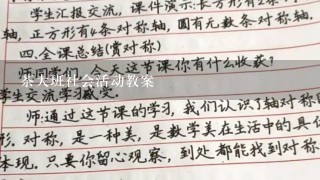 学生汇报交流，课件演示：长方形有2条对
轴，正方形有4条对称轴，圆有无数条对称轴.
四.全课总结(赏对称)
师：同学们，今天这节课你有什么收获？
余天班社会活动教案
学生交流学习感
师：通过这节课的学习，我们认识了轴对称
形.对称，是一种美，是数学美在生活中的具
体现.只要你留心观察，到处都能找到对称